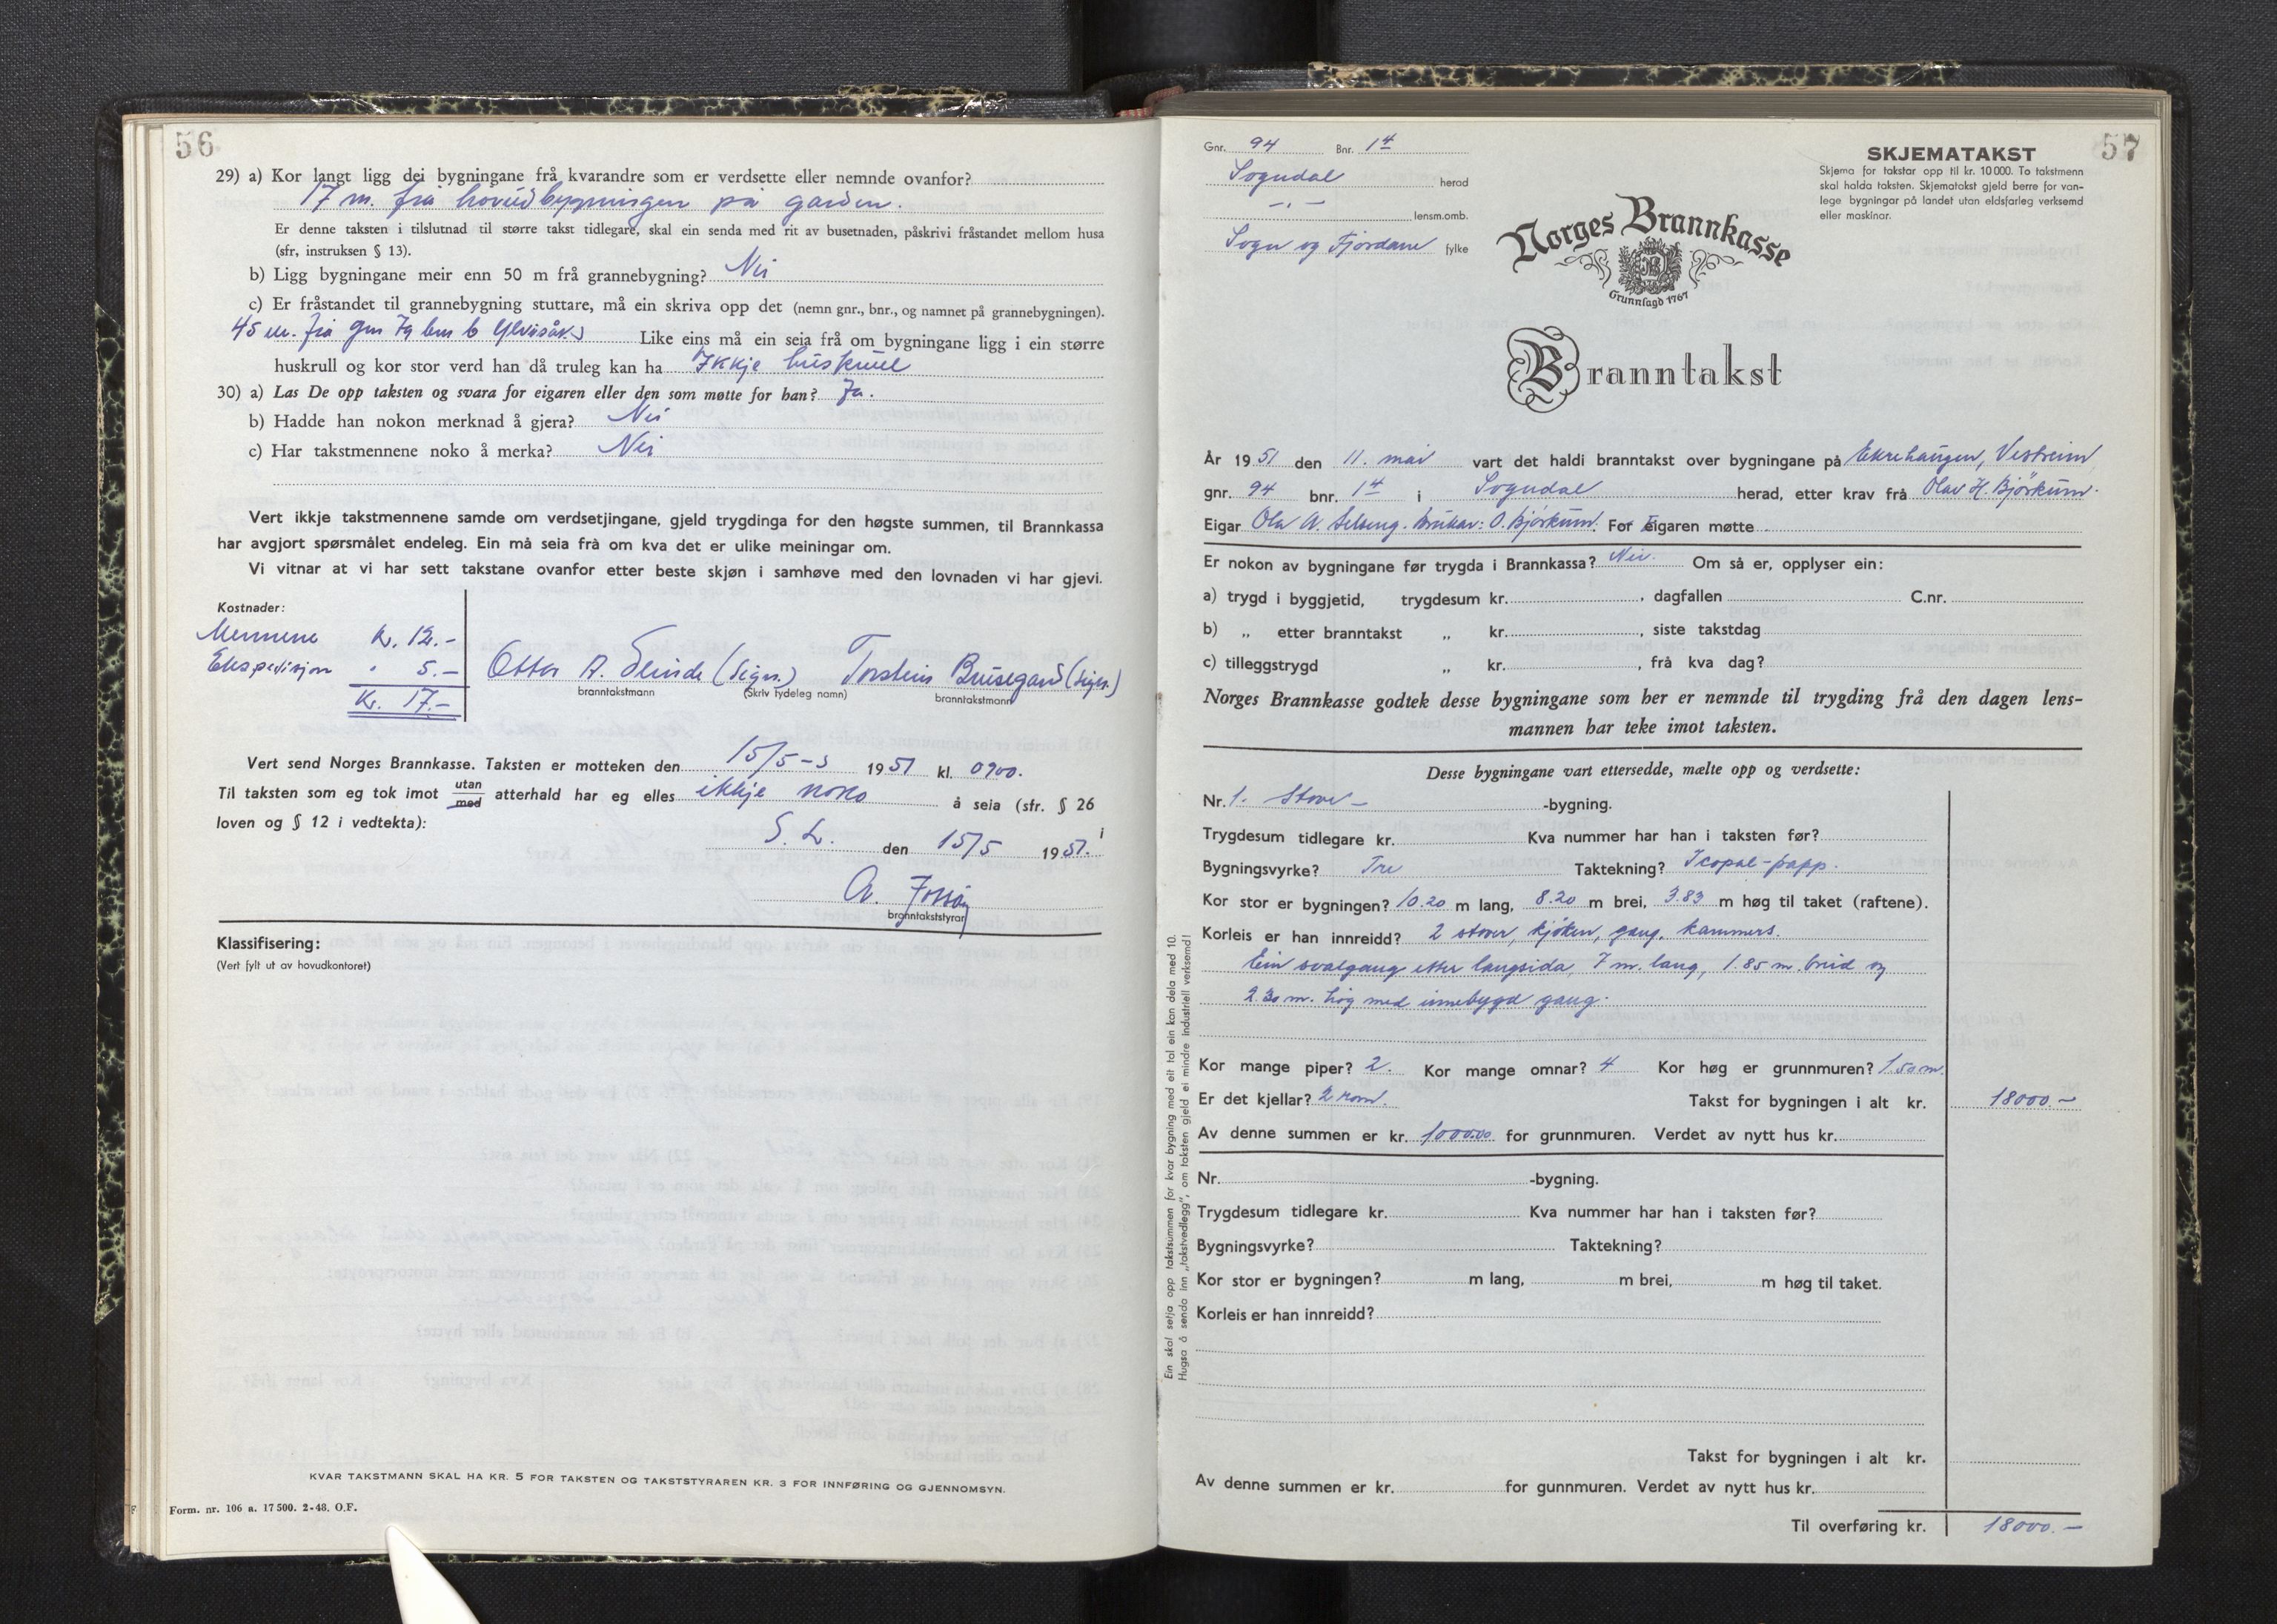 56
29) a) Kor langt ligg dei bygningane frå kvarandre som er verdsette eller nemnde ovanfor?
17 m. frå hovudbygningen på garden.
Er denne taksten i tilslutnad til større takst tidlegare, skal ein senda med rit av busetnaden, påskrivi fråstandet mellom husa
(sfr, instruksen § 13).
b) Ligg bygningane meir enn 50 m frå grannebygning? Nei
c) Er fråstandet til grannebygning stuttare, må ein skriva opp det (nemn gnr., bnr., og namnet på grannebygningen).
45 m. frå gnr 79 bnr 6 Ylvisåk. Like eins må ein seia frå om bygningane ligg i ein større
huskrull og kor stor verd han då truleg kan ha Ikkje huskrull
30) a) Las De opp taksten og svara for eigaren eller den som møtte for han? Ja.
b) Hadde han nokon merknad å gjera? Nei
c) Har takstmennene noko å merka? Nei
Vert ikkje takstmennene samde om verdsetjingane, gjeld trygdinga for den høgste summen, til Brannkassa
har avgjort spørsmålet endeleg. Ein må seia frå om kva det er ulike meiningar om.
Vi vitnar at vi har sett takstane ovanfor etter beste skjøn i samhøve med den lovnaden vi har gjevi.
Kostnader:
Mennene Kr. 12.-
Ekspedisjon " 5.-
Kr. 17.-
Otter A. Slinde (sign.) Torstein Brusegard (sign.)
branntakstmann (Skriv tydeleg namn) branntakstmann
Vert send Norges Brannkasse. Taksten er motteken den 15/5-s 1951 kl. 0900.
Til taksten som eg tok imot utan/med atterhald har eg elles ikkje noko å seia (sfr. § 26 i
loven og § 12 i vedtekta):
S. L. den 15/5 1951.
A.
branntakststyrar
Klassifisering:
(Vert fylt ut av hovudkontoret)
KVAR TAKSTMANN SKAL HA KR. 5 FOR TAKSTEN OG TAKSTSTYRAREN KR. 3 FOR INNFØRING OG GJENNOMSYN.
Form. nr. 106 a. 17 500. 2-48. O.F.
57
Gnr. 94 Bnr. 14
Sogndal herad
-"- lensm.omb.
Sogn og Fjordane fylke
SKJEMATAKST
Skjema for takstar opp til kr. 10 000. To takstmenn
skal halda taksten. Skjematakst gjeld berre for van-
lege bygningar på landet utan eldsfarleg verksemd
eller maskinar.
Norges Brannkasse
Grunnlagd 1767
Branntakst
År 1951 den 11. mai vart det haldi branntakst over bygningane på Ekrehaugen, Vestreim
gnr. 94 bnr. 14 i Sogndal herad, etter krav frå Olav H. Bjørkum.
Eigar Ola A. Selseng. Brukar: O. Bjørkum. For Eigaren møtte
Er nokon av bygningane før trygda i Brannkassa? Nei. Om så er, opplyser ein:
a) trygd i byggjetid, trygdesum kr. , dagfallen C.nr.
b) „ etter branntakst „ kr. , siste takstdag
c) tilleggstrygd „ kr. , frå kva dag?
Norges Brannkasse godtek desse bygningane som her er nemnde til trygding frå den dagen lens-
mannen har teke imot taksten.
Desse bygningane vart ettersedde, mælte opp og verdsette:
Nr. 1. Stove- -bygning.
Trygdesum tidlegare kr. Kva nummer har han i taksten før?
Bygningsvyrke? Tre Taktekning? Icopal-papp.
Kor stor er bygningen? 10.20 m lang, 8.20 m brei, 3.83 m høg til taket (raftene).
Korleis er han innreidd? 2 stover, kjøken, gang, kammers.
Ein svalgang etter langsida, 7 m. lang, 1.85 m. breid og
2.30 m. høg med innebygd gang.
Kor mange piper? 2. Kor mange omnar? 4 Kor høg er grunnmuren? 1.50 m.
Er det kjellar? 2 rom. Takst for bygningen i alt kr. 18000.-
Av denne summen er kr. 1000.00 for grunnmuren. Verdet av nytt hus kr.
Nr. -bygning.
Trygdesum tidlegare kr. Kva nummer har han i taksten før?
Bygningsvyrke? Taktekning?
Kor stor er bygningen? m lang, m brei, m høg til taket.
Korleis er han innreidd?
Takst for bygningen i alt kr.
Av denne summen er kr. for gunnmuren. Verdet av nytt hus kr.
Til overføring kr. 18000.-
Ein skal setja opp takstsummen for kvar bygning med eit tal ein kan dela med 10.
Hugsa å senda inn „takstvedlegg", om taksten gjeld ei mindre industriell verksemd!